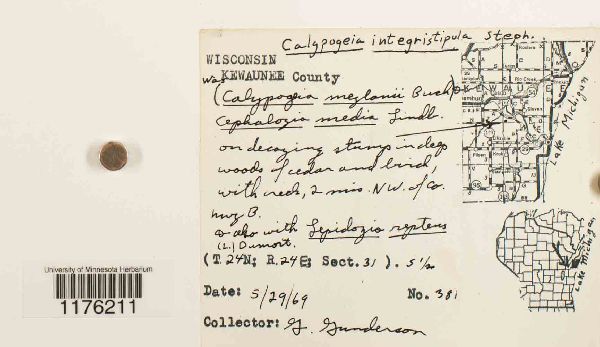 Calypogeia integristipula Steph.
WISCONSIN
Was KEWAUNEE County
(Calypogeia meylanii Buch)
Cephalozia media Lindb.
on decaying stump in deep
woods of cedar and birch,
with creek, 2 mis. N.W. of Co.
hwy B.
also with Lepidozia reptans
(L.) Dumort.
(T. 24N; R. 24E; Sect. 31 ). S 1/2
Date: 5/29/69 No. 381
Collector: G. Gunderson
University of Minnesota Herbarium
1176211
KEWAUNEE
Lake Michigan
Lake Michigan